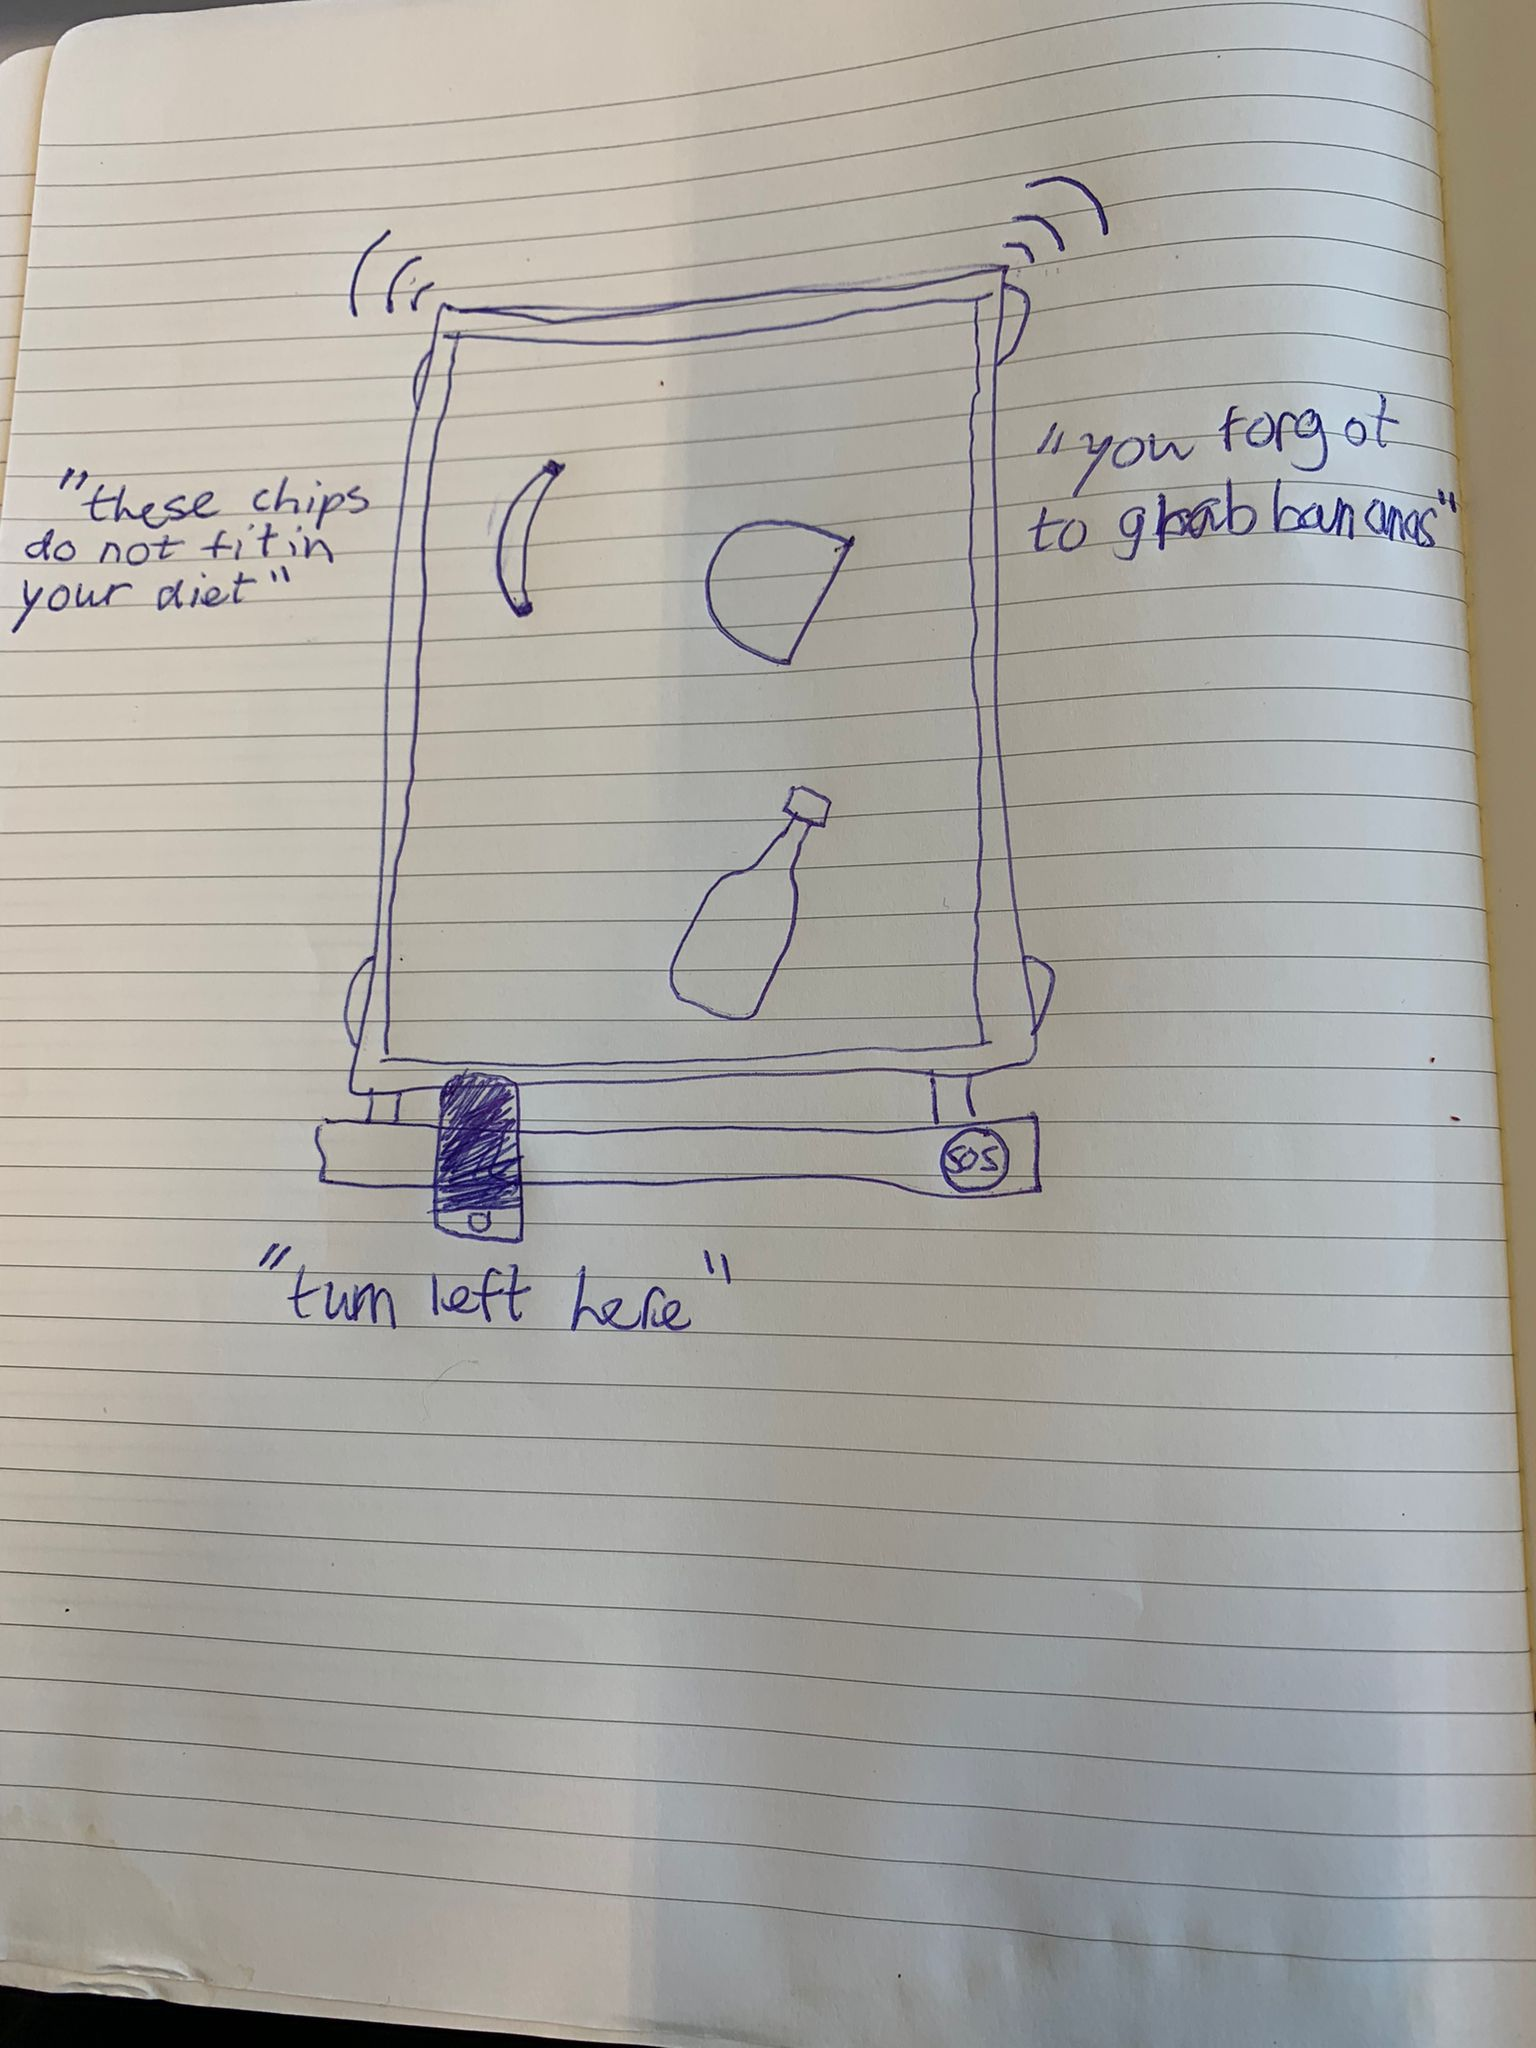 "these chips
do not fit in
your diet"
"you forgot
to grab bananas"
SOS
"turn left here"